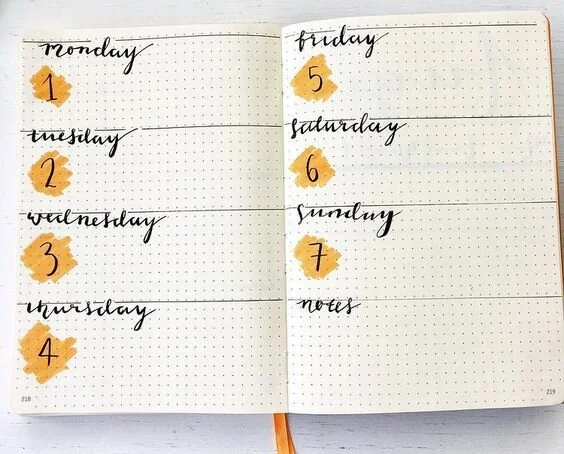 monday
1
tuesday
2
wednesday
3
thursday
4
218
friday
5
saturday
6
sunday
7
notes
219